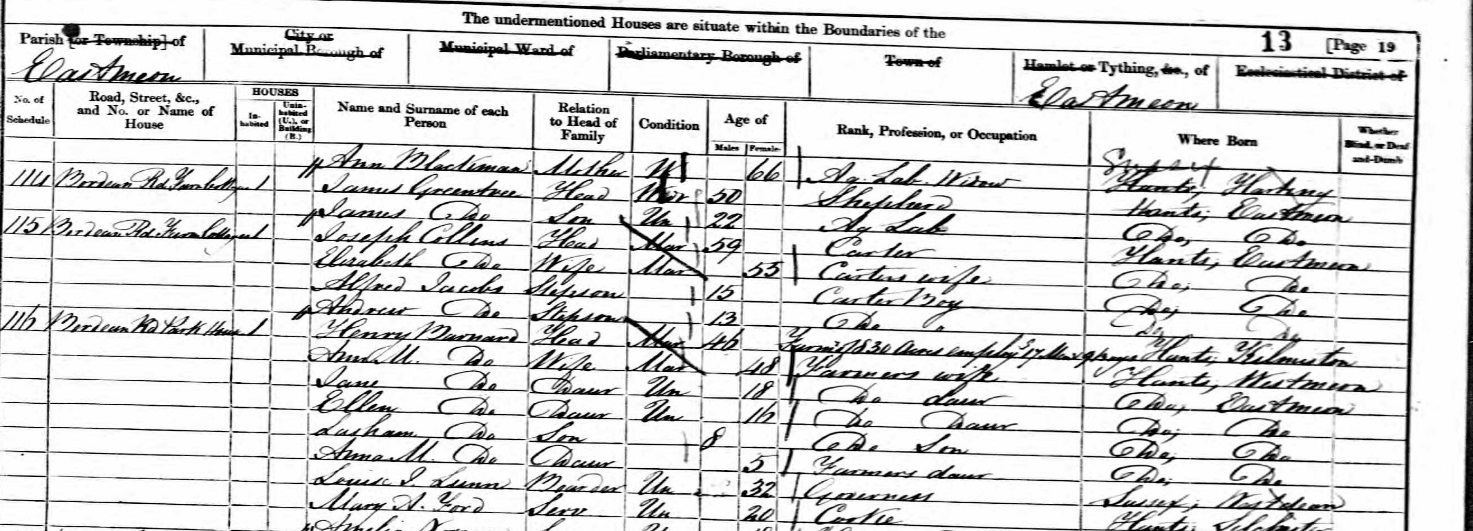 The undermentioned Houses are situate within the Boundaries of the
13 [Page 19
Parish [or Township] of City or Municipal Borough of Municipal Ward of Parliamentary Borough of Town of Hamlet or Tything, &c., of Ecclesiastical District of
Eastmeon Eastmeon
No. of Schedule Road, Street, &c., and No. or Name of House HOUSES Inhabited Uninhabited (U.), or Building (B.) Name and Surname of each Person Relation to Head of Family Condition Age of Males Females Rank, Profession, or Occupation Where Born Whether Blind, or Deaf-and-Dumb
Ann Mother 66 Ag. Lab. Widow Sussex Harting
114 Bordean Rd 1 James Greentree Head Wdr 50 Shepherd Hants, Eastmeon
James Do Son Un 22 Ag Lab Do, Do
115 Bordean Rd 1 Joseph Collins Head Mar 59 Carter Hants, Eastmeon
Elizabeth Do Wife Mar 55 Carters wife Do, Do
Alfred Jacobs Stepson 15 Carter Boy Do, Do
Andrew Do Stepson 13 Do Do Do
116 Bordean Rd Park House 1 Henry Barnard Head Mar 46 Farmr of 830 Acres employs 17 Men 9 boys Hants, Kilmiston
Anna M. Do Wife Mar 48 Farmers wife Hants, Westmeon
Jane Do Daur Un 18 Do Daur Do, Eastmeon
Ellen Do Daur Un 16 Do Daur Do, Do
Lasham Do Son 8 Do Son Do, Do
Anna M. Do Daur 5 Farmers daur Do, Do
Louise J. Lunn Boarder Un 32 Governess Sussex,
Mary A. Ford Serv Un 20 Cook Hants,